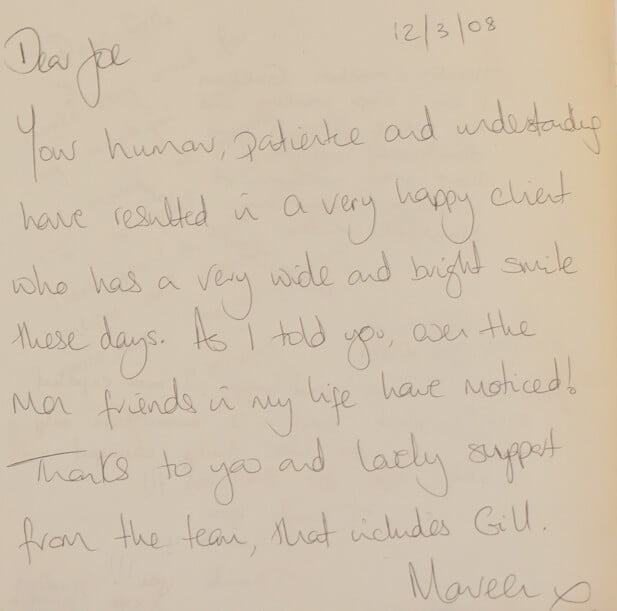 12/3/08
Dear Joe
Your humour, patience and understanding
have resulted in a very happy client
who has a very wide and bright smile
these days. As I told you, even the
men friends in my life have noticed!
Thanks to you and lovely support
from the team, that includes Gill.
Maureen x